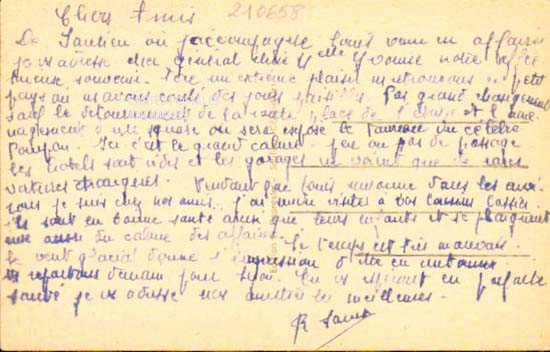 Chers Amis
210658
De Saulieu où j'accompagne Louis venu en affaires
je adresse cher général chère Mme Yvonne notre
souvenir. un extrême plaisir petit
pays où ns avons coulé des jours paisibles. Pas grand changement
sauf le détournement de la route, face de l' et l'
d'un square où sera exposé le taureau du célèbre
Pompon. Ici c'est le grand calme - peu ou pas de passage
les hotels sont vides et les garages ne voient que de rares
voitures étrangères. Pendant que Louis dans les
je suis chez nos amis. J'ai rendu visite à vos cousins
ils sont en bonne santé ainsi que leurs enfants et se plaignent
eux aussi du calme des affaires. Le temps est très mauvais.
le vent glacial donne l'impression d'être en automne.
ns repartons demain pour Lyon. En vs espérant en parfaite
santé je vs adresse nos amitiés les meilleures.
R